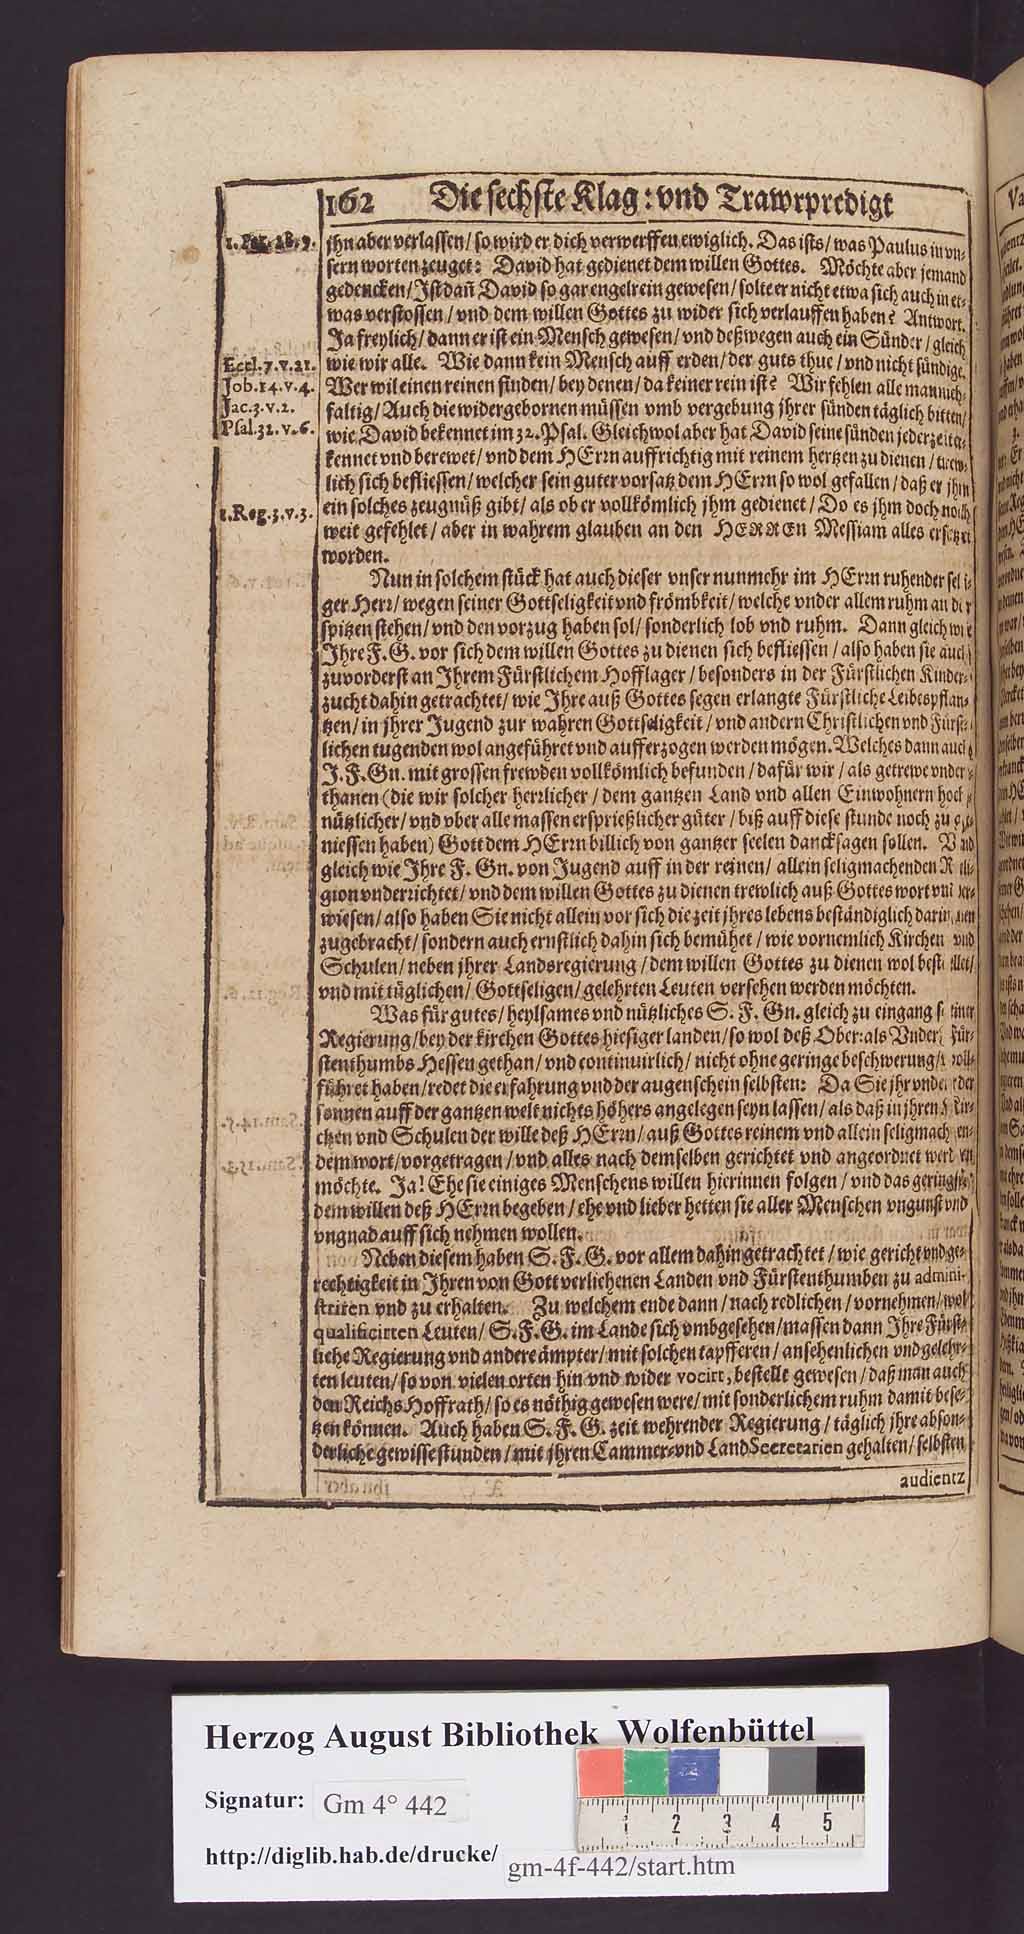 162 Die sechste Klag: vnd Trawrpredigt
jhn aber verlassen / so wird er dich verwerffen ewiglich. Das ists / was Paulus in vn-
sern worten zeuget: David hat gedienet dem willen Gottes. Möchte aber jemand
gedencken / Ist dañ David so gar engelrein gewesen / solte er nicht etwa sich auch in et-
was verstossen / vnd dem willen Gottes zu wider sich verlauffen haben? Antwort.
Ja freylich / dann er ist ein Mensch gewesen / vnd deßwegen auch ein Sünder / gleich
Eccl. 7. v. 21.
wie wir alle. Wie dann kein Mensch auff erden / der guts thue / vnd nicht sündige.
Job. 14. v. 4.
Wer wil einen reinen finden / bey denen / da keiner rein ist? Wir fehlen alle mannich-
Jac. 3. v. 2.
faltig / Auch die widergebornen müssen vmb vergebung jhrer sünden täglich bitten /
Psal. 32. v. 6.
wie David bekennet im 32. Psal. Gleichwol aber hat David seine sünden jederzeit er-
kennet vnd berewet / vnd dem HErrn auffrichtig mit reinem hertzen zu dienen / trew-
lich sich beflissen / welcher sein guter vorsatz dem HErrn so wol gefallen / daß er jhm
1. Reg. 3. v. 3.
ein solches zeugnüß gibt / als ob er vollkömlich jhm gedienet / Do es jhm doch noch
weit gefehlet / aber in wahrem glauben an den HERREn Messiam alles ersetzet
worden.
Nun in solchem stück hat auch dieser vnser nunmehr im HErrn ruhender seli-
ger Herr / wegen seiner Gottseligkeit vnd frömbkeit / welche vnder allem ruhm an der
spitzen stehen / vnd den vorzug haben sol / sonderlich lob vnd ruhm. Dann gleich wie
Ihre F. G. vor sich dem willen Gottes zu dienen sich befliessen / also haben sie auch
zuvorderst an Ihrem Fürstlichem Hofflager / besonders in der Fürstlichen Kinder-
zucht dahin getrachtet / wie Ihre auß Gottes segen erlangte Fürstliche Leibespflan-
tzen / in jhrer Jugend zur wahren Gottseligkeit / vnd andern Christlichen vnd Fürst-
lichen tugenden wol angeführet vnd aufferzogen werden mögen. Welches dann auch
J. F. Gn. mit grossen frewden vollkömlich befunden / dafür wir / als getrewe vnder-
thanen (die wir solcher herrlicher / dem gantzen Land vnd allen Einwohnern hoch
nützlicher / vnd vber alle massen ersprießlicher güter / biß auff diese stunde noch zu ge-
niessen haben) Gott dem HErrn billich von gantzer seelen dancksagen sollen. Vnd
gleich wie Ihre F. Gn. von Jugend auff in der reinen / allein seligmachenden Reli-
gion vnderrichtet / vnd dem willen Gottes zu dienen trewlich auß Gottes wort vnder-
wiesen / also haben Sie nicht allein vor sich die zeit jhres lebens beständiglich darinnen
zugebracht / sondern auch ernstlich dahin sich bemühet / wie vornemlich Kirchen vnd
Schulen / neben jhrer Landsregierung / dem willen Gottes zu dienen wol bestellet /
vnd mit tüglichen / Gottseligen / gelehrten Leuten versehen werden möchten.
Was für gutes / heylsames vnd nützliches S. F. Gn. gleich zu eingang seiner
Regierung / bey der kirchen Gottes hiesiger landen / so wol deß Ober: als Vnder Für-
stenthumbs Hessen gethan / vnd continuirlich / nicht ohne geringe beschwerung / voll-
führet haben / redet die erfahrung vnd der augenschein selbsten: Da Sie jhr vnder der
sonnen auff der gantzen welt nichts höhers angelegen seyn lassen / als daß in jhren Kir-
chen vnd Schulen der wille deß HErrn / auß Gottes reinem vnd allein seligmachen-
dem wort / vorgetragen / vnd alles nach demselben gerichtet vnd angeordnet werden
möchte. Ja! Ehe sie einiges Menschens willen hierinnen folgen / vnd das geringste
dem willen deß HErrn begeben / ehe vnd lieber hetten sie aller Menschen vngunst vnd
vngnad auff sich nehmen wollen.
Neben diesem haben S. F. G. vor allem dahin getrachtet / wie gericht vnd ge-
rechtigkeit in Ihren von Gott verliehenen Landen vnd Fürstenthumben zu admini-
striren vnd zu erhalten. Zu welchem ende dann / nach redlichen / vornehmen / wol
qualificirten Leuten / S. F. G. im Lande sich vmbgesehen / massen dann Ihre Fürst-
liche Regierung vnd andere ämpter / mit solchen tapfferen / ansehenlichen vnd gelehr-
ten leuten / so von vielen orten hin vnd wider vocirt, bestellt gewesen / daß man auch
den Reichs Hoffrath / so es nöthig gewesen were / mit sonderlichem ruhm damit bese-
tzen können. Auch haben S. F. G. zeit wehrender Regierung / täglich jhre abson-
derliche gewisse stunden / mit jhren Cammer- vnd Land Secretarien gehalten / selbsten
audientz
Herzog August Bibliothek Wolfenbüttel
Signatur: Gm 4° 442
http://diglib.hab.de/drucke/ gm-4f-442/start.htm
1 2 3 4 5